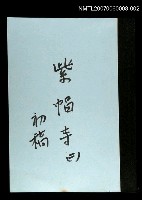 NMTL20070060008-002
紫帽寺(四)
初稿